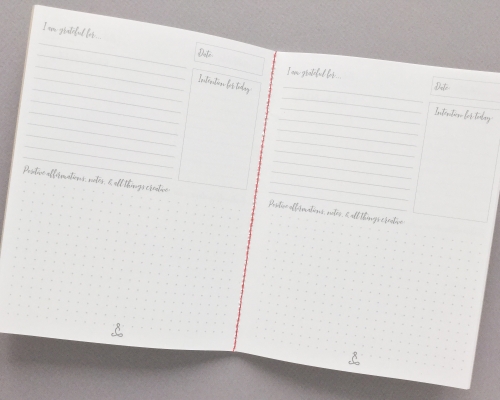 I am grateful for...
Date
Intention for today
Positive affirmations, notes, & all things creative
I am grateful for...
Date
Intention for today
Positive affirmations, notes, & all things creative